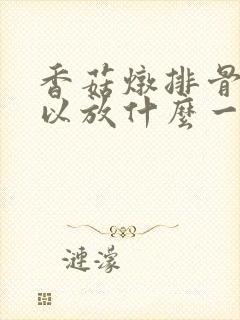 香菇燉排骨
以放什麼一
漣濛